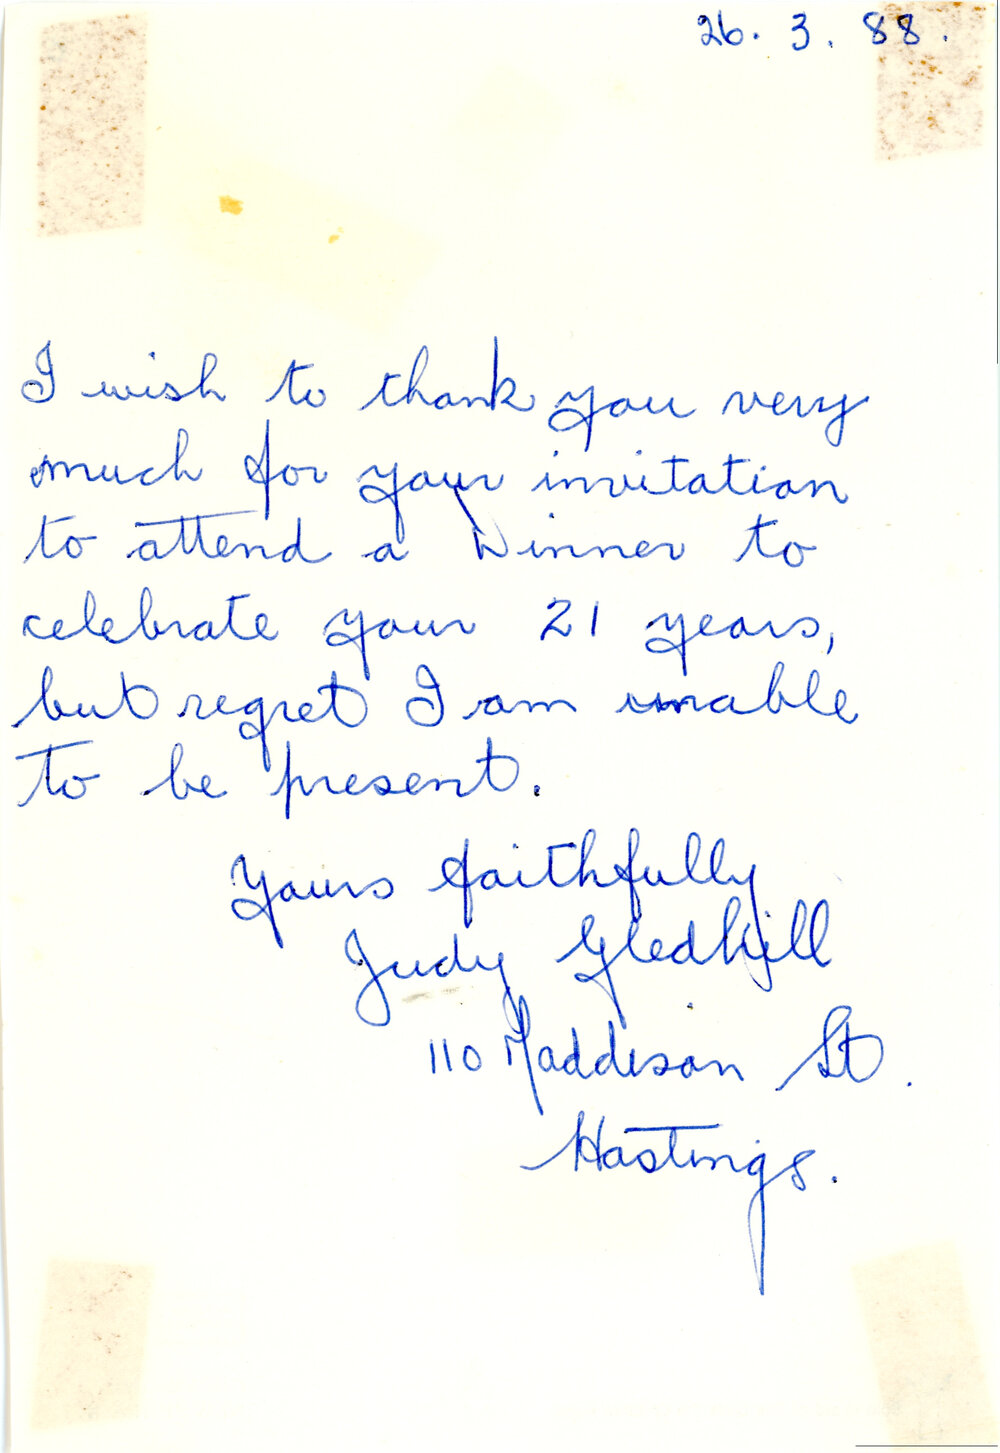 26. 3. 88.
I wish to thank you very
much for your invitation
to attend a Dinner to
celebrate your 21 years,
but regret I am unable
to be present.
Yours faithfully
Judy Gledhill
110 Maddison St.
Hastings.